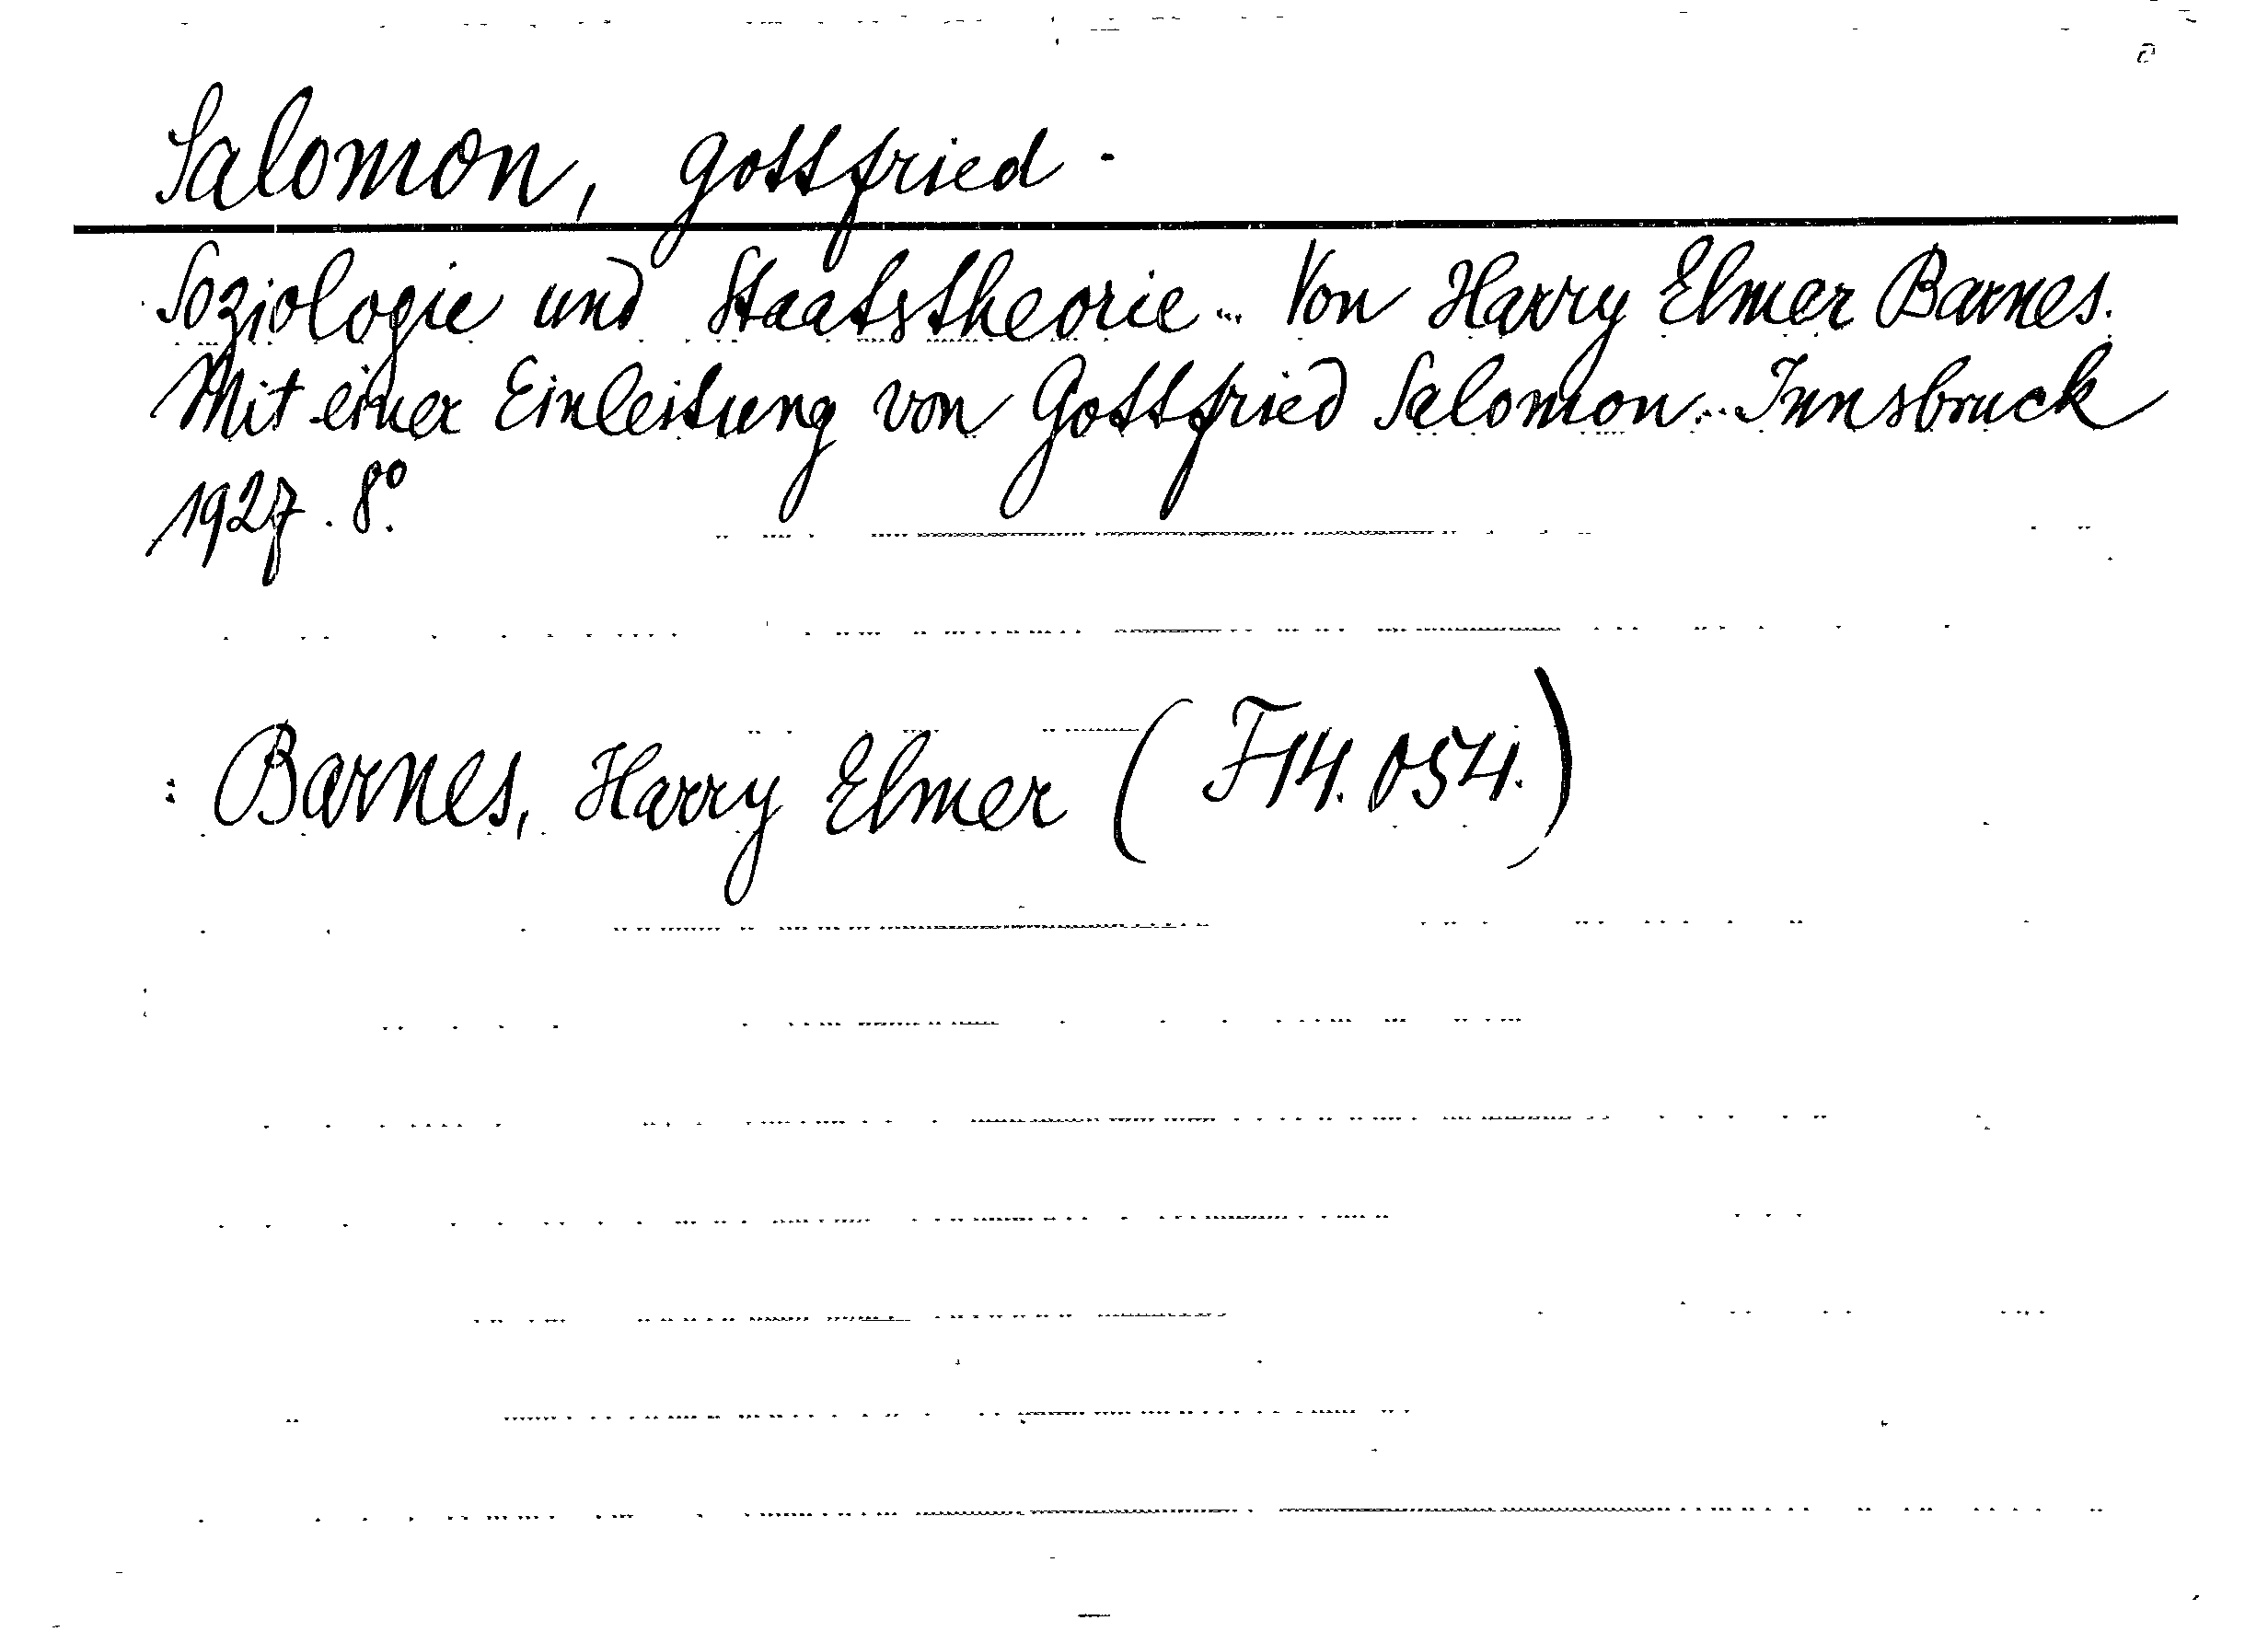 Salomon, Gottfried.
Soziologie und Staatstheorie... Von Harry Elmer Barnes.
Mit einer Einleitung von Gottfried Salomon... Innsbruck
1927. 8°.
: Barnes, Harry Elmer (F14.054.)